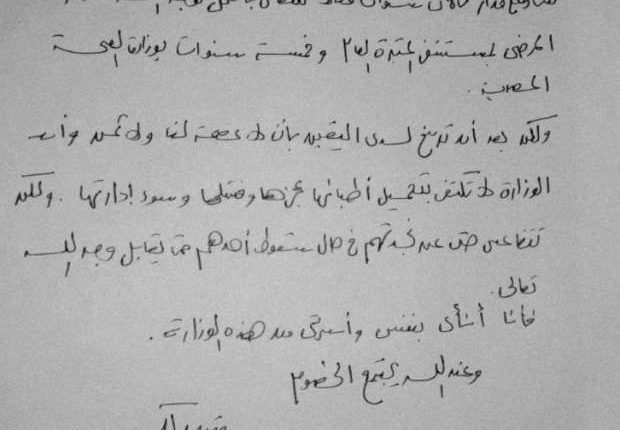 المرضى بمستشفى المنزلة العام وخمسة سنوات بوزارة الصحة
المصرية.
ولكن بعد أن ترسخ لدى اليقين بأن لا قيمة لنا ولا ثمن وأن
الوزارة لا تكتفى بتحميل أطبائها عجزها وفشلها وسوء إدارتها. ولكن
تتقاعس حتى عن نجدتهم في حال سقوط أحدهم حتى يقابل وجه الله
تعالى.
فأنا أنأى بنفسى وأستبرئ من هذه الوزارة.
وعند الله يجتمع الخصوم